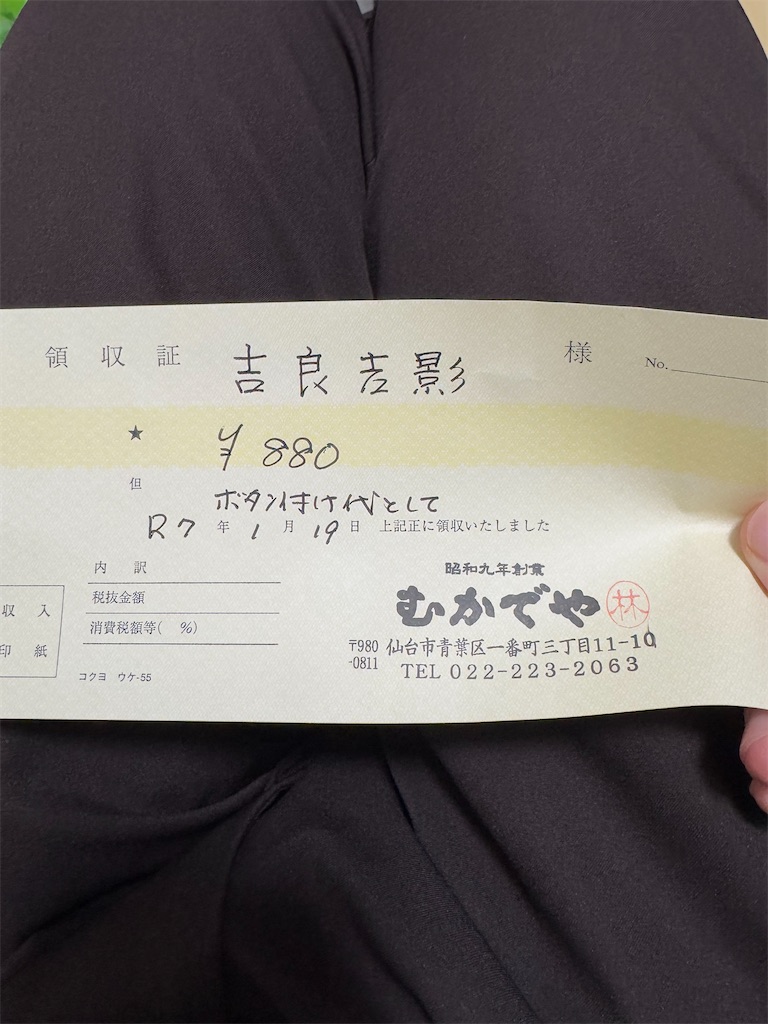 領収証 吉良吉影 様 No.
★ ¥880
但 ボタン付け代として
R7年1月19日 上記正に領収いたしました
内訳
税抜金額
消費税額等( %)
収入
印紙
コクヨ ウケ-55
昭和九年創業
むかでや 林
〒980-0811 仙台市青葉区一番町三丁目11-10
TEL 022-223-2063